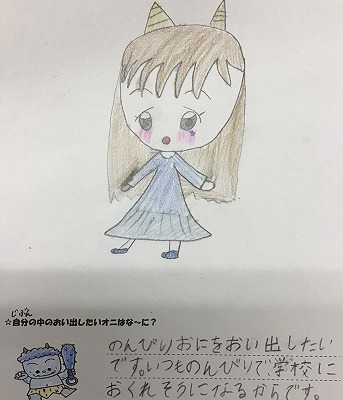 じぶん
☆自分の中のおい出したいオニはな〜に？
のんびりおにをおい出したい
です。いつものんびりで学校に
おくれそうになるからです。